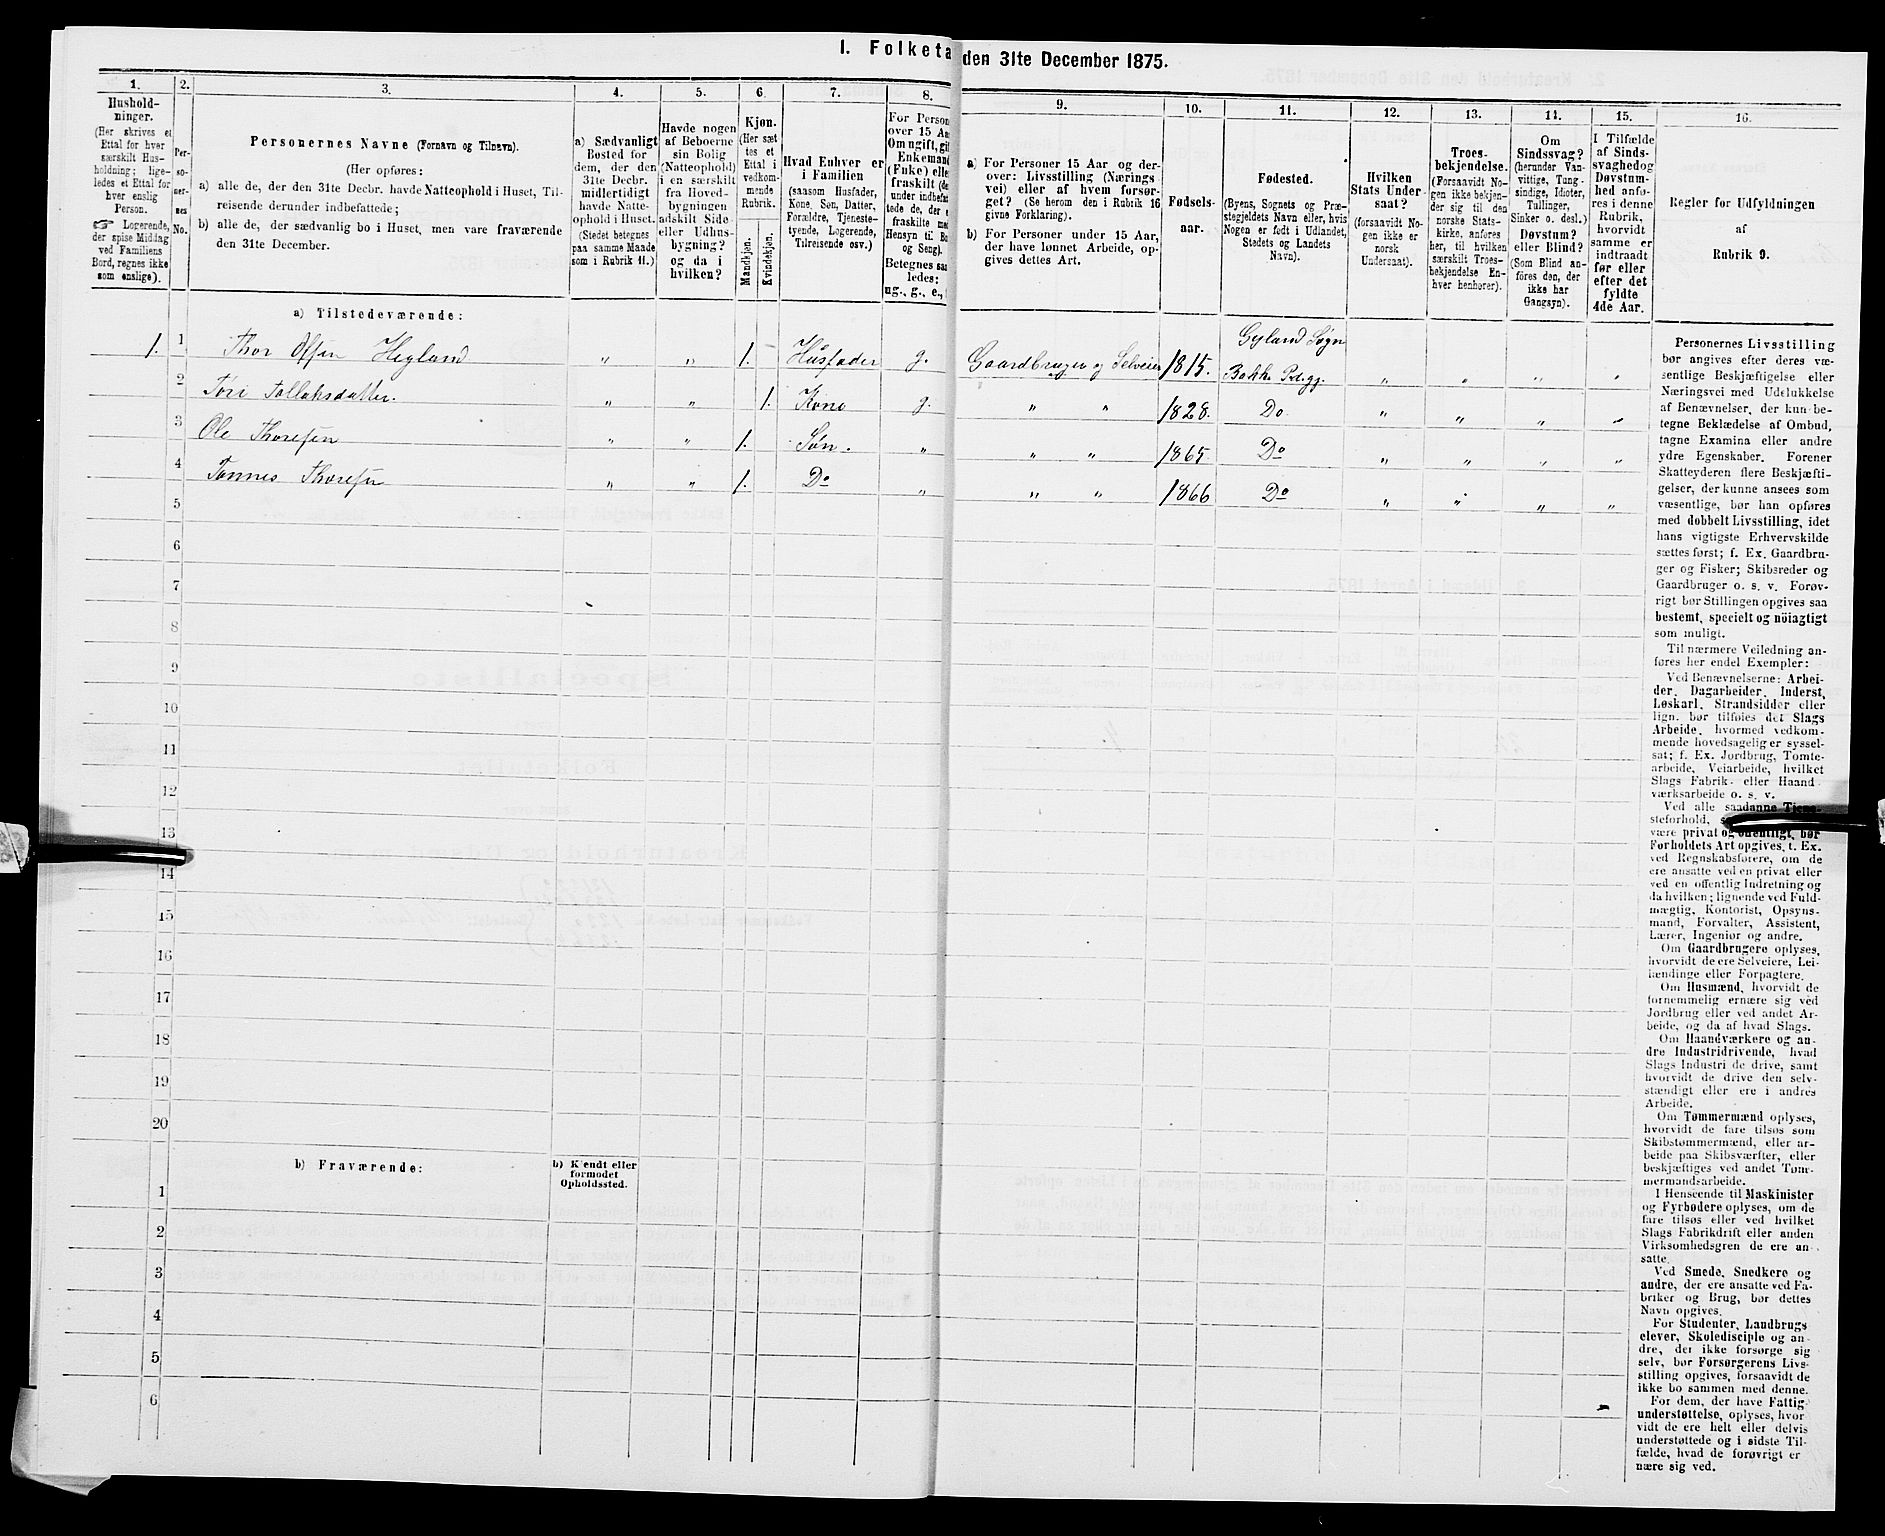 I. Folketa den 31te December 1875.
1. 2. 3. 4. 5. 6. 7. 8. 9. 10. 11. 12. 13. 14. 15. 16.
Hushold-
ninger.
(Her skrives et
Ettal for hver
særskilt Hus-
holdning; lige-
ledes et Ettal for
hver enslig
Person.
☞ Logerende,
der spise Middag
ved Familiens
Bord, regnes ikke
som enslige).
Per-
so-
ner-
nes
No.
Personernes Navne (Fornavn og Tilnavn).
(Her opføres:
a) alle de, der den 31te Decbr. havde Natteophold i Huset, Til-
reisende derunder indbefattede;
b) alle de, der sædvanlig bo i Huset, men vare fraværende
den 31te December.
a) Sædvanligt
Bosted for
dem, der den
31te Decbr.
midlertidigt
havde Natte-
ophold i Huset.
(Stedet betegnes
paa samme Maade
som i Rubrik 11.)
Havde nogen
af Beboerne
sin Bolig
(Natteophold)
i en særskilt
fra Hoved-
bygningen
adskilt Side-
eller Udhus-
bygning?
og da i
hvilken?
Kjøn.
(Her sæt-
tes et
Ettal i
vedkom-
mende
Rubrik.
Mandkjøn.
Kvindekjøn.
Hvad Enhver er
i Familien
(saasom Husfader,
Kone, Søn, Datter,
Forældre, Tjeneste-
tyende, Logerende,
Tilreisende osv.)
For Person
over 15 Aa
Om ugift, gif
Enkemand
(Enke) elle
fraskilt (de
under indbefat
tede de, der e
fraskilte me
Hensyn til Bo
og Seng).
Betegnes saa
ledes:
ug., g., e.,
a) For Personer 15 Aar og der-
over: Livsstilling (Nærings-
vei) eller af hvem forsør-
get? (Se herom den i Rubrik 16
givne Forklaring).
b) For Personer under 15 Aar,
der have lønnet Arbeide, op-
gives dettes Art.
Fødsels-
aar.
Fødested.
(Byens, Sognets og Præ-
stegjeldets Navn eller, hvis
Nogen er født i Udlandet,
Stedets og Landets
Navn).
Hvilken
Stats Under-
saat?
(forsaavidt No-
gen ikke er
norsk
Undersaat).
Troes-
bekjendelse.
(Forsaavidt No-
gen ikke bekjen-
der sig til den
norske Stats-
kirke, anføres
her, til hvilken
særskilt Troes-
bekjendelse En-
hver henhører).
Om
Sindssvag?
(herunder Van-
vittige, Tung-
sindige, Idioter,
Tullinger,
Sinker o. desl.)
Døvstum?
eller Blind?
(Som Blind an-
føres den, der
ikke har
Gangsyn).
I Tilfælde
af Sinds-
svaghed og
Døvstum-
hed anfø-
res i denne
Rubrik,
hvorvidt
samme er
indtraadt
før eller
efter det
fyldte
4de Aar.
Regler for Udfyldningen
af
Rubrik 9.
a) Tilstedeværende:
1. 1 Thor Olsen Hegland „ „ 1. Husfader g. Gaardbruger og Selveier 1815. Gyland Sogn Bakke Prstgj. „ „ „ „
2 Tóri Tollaksdatter. „ „ 1. Kone g. „ „ 1828. Do „ „ „ „
3 Ole Thoresen „ „ 1. Søn. „ „ „ 1865. Do „ „ „ „
4 Tønnes Thoresen „ „ 1. Do „ „ „ 1866 Do „ „ „ „
5
6
7
8
9
10
11
12
13
14
15
16
17
18
19
20
b) Fraværende:
b) Kjendt eller
formodet
Opholdssted.
1
2
3
4
5
6
Personernes Livsstilling
bør angives efter deres væ-
sentlige Beskjæftigelse eller
Næringsvei med Udelukkelse
af Benævnelser, der kun be-
tegne Beklædelse af Ombud,
tagne Examina eller andre
ydre Egenskaber. Forener
Skatteyderen flere Beskjæfti-
gelser, der kunne ansees som
væsentlige, bør han opføres
med dobbelt Livsstilling, idet
hans vigtigste Erhvervskilde
sættes først; f. Ex. Gaardbru-
ger og Fisker; Skibsreder og
Gaardbruger o. s. v. Forøv-
rigt bør Stillingen opgives saa
bestemt, specielt og nöiagtigt
som muligt.
Til nærmere Veiledning an-
føres her endel Exempler:
Ved Benævnelserne: Arbei-
der, Dagarbeider, Inderst,
Løskarl, Strandsidder eller
lign. bør tilføies det Slags
Arbeide, hvormed vedkom-
mende hovedsagelig er syssel-
sat; f. Ex. Jordbrug, Tomte-
arbeide, Veiarbeide, hvilket
Slags Fabrik- eller Haand
værksarbeide o. s. v.
Ved alle saadanne Tjene-
steforhold, s
være privat og offentligt, bør
Forholdets Art opgives, f. Ex.
ved Regnskabsførere, om de
ere ansatte ved en privat eller
ved en offentlig Indretning og
da hvilken; lignende ved Fuld-
mægtig, Kontorist, Opsyns-
mand, Forvalter, Assistent,
Lærer, Ingeniør og andre.
Om Gaardbrugere oplyses,
hvorvidt de ere Selveiere, Lei-
lændinge eller Forpagtere.
Om Husmænd, hvorvidt de
fornemmelig ernære sig ved
Jordbrug eller ved andet Ar-
beide, og da af hvad Slags.
Om Haandværkere og an-
dre Industridrivende, hvad
Slags Industri de drive, samt
hvorvidt de drive den selv-
stændigt eller ere i andres
Arbeide.
Om Tømmermænd oplyses,
hvorvidt de fare tilsøs som
Skibstømmermænd, eller ar-
beide paa Skibsværfter, eller
beskjæftiges ved andet Tøm-
mermandsarbeide.
I Henseende til Maskinister
og Fyrbødere oplyses, om de
fare tilsøs eller ved hvilket
Slags Fabrikdrift eller anden
Virksomhedsgren de ere an-
satte.
Ved Smede, Snedkere og
andre, der ere ansatte ved Fa-
briker og Brug, bør dettes
Navn opgives.
For Studenter, Landbrugs-
elever, Skoledisciple og an-
dre, der ikke forsørge sig
selv, bør Forsørgerens Livs-
stilling opgives, forsaavidt de
ikke bo sammen med denne.
For dem, der have Fattig-
understøttelse, oplyses, hvor-
vidt de ere helt eller delvis
understøttede og i sidste Til-
fælde, hvad de forøvrigt er-
nære sig ved.